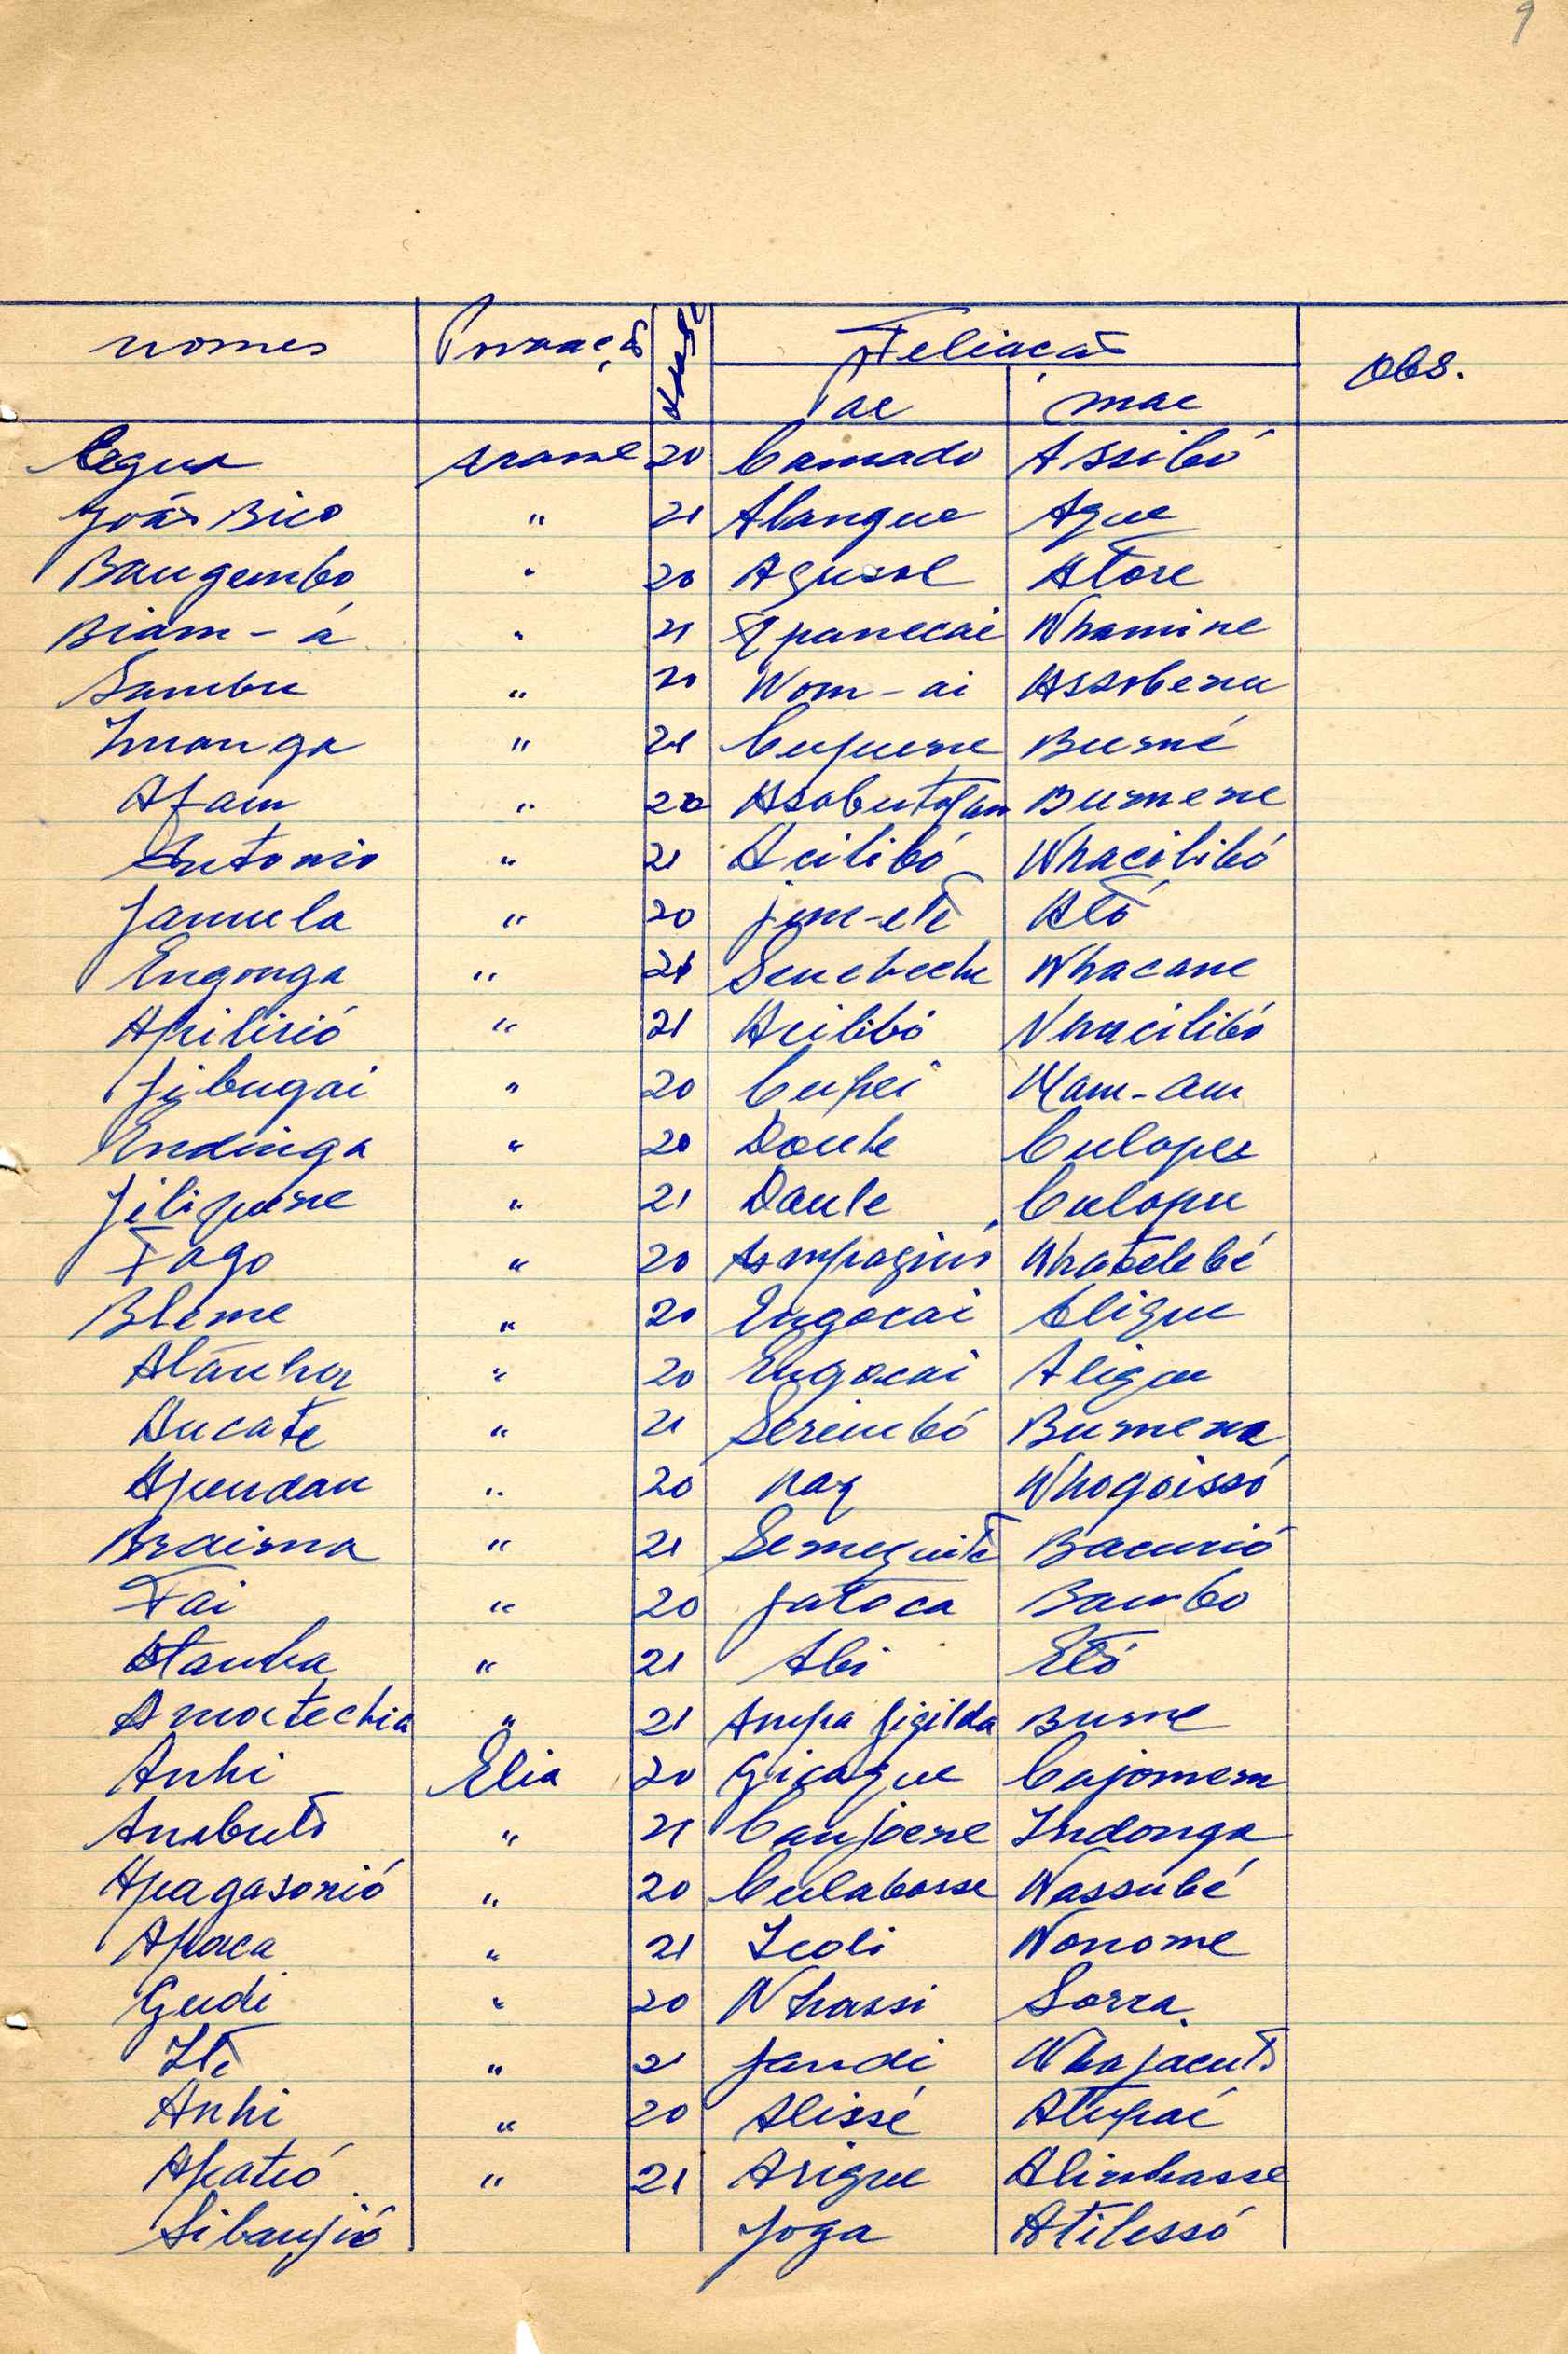 9
nomes Povoação Feliacão Obs.
Pae mae
Cegua arame 20 Camado Assibó
João Bico " 21 Abangue Ague
Baugembo " 20 Agusal Atore
Biam-á " 21 Nhamine
Sambu " 20 Nom-ai Assobenu
Inuanga " 21 Cupuene Busné
Afam " 20 Busmene
Antonio " 21 Acilibó Nhacilibó
Januela " 20 jum-eté Ató
Engonga " 21 Nhacane
Apilisió " 21 Acilibó Nhacilibó
Jibugai " 20 Cupei Mam-am
Endinga " 20 Daule Culapu
Jiliquene " 21 Daule Culapu
Fago " 20 Ampagiús Nhatelebé
Bleme " 20 Engocai Aligue
" 20 Engocai Aligue
Aucate " 21 Sereimbó Busmene
Apundau " 20 Nhogoissó
Braima " 21 Semeguité Bacurió
Fai " 20 Jatoca Bambo
Atanha " 21 Abi Etó
Amatechia " 21 Ampa Jigilda Busne
Anhi Elia 20 Gicague Cajomem
Anabutó " 21 Canjaene Indonga
Apagasonió " 20 Culabosse Nassubé
Apaca " 21 Iedi Nonome
Gudi " 20 Nhassi Sorra
Ité " 21 Jandi Nhajacutó
Anhi " 20 Alissé Atupaé
Apatió " 21 Arigue Alinhasse
Sibaujió Joga Atilessó